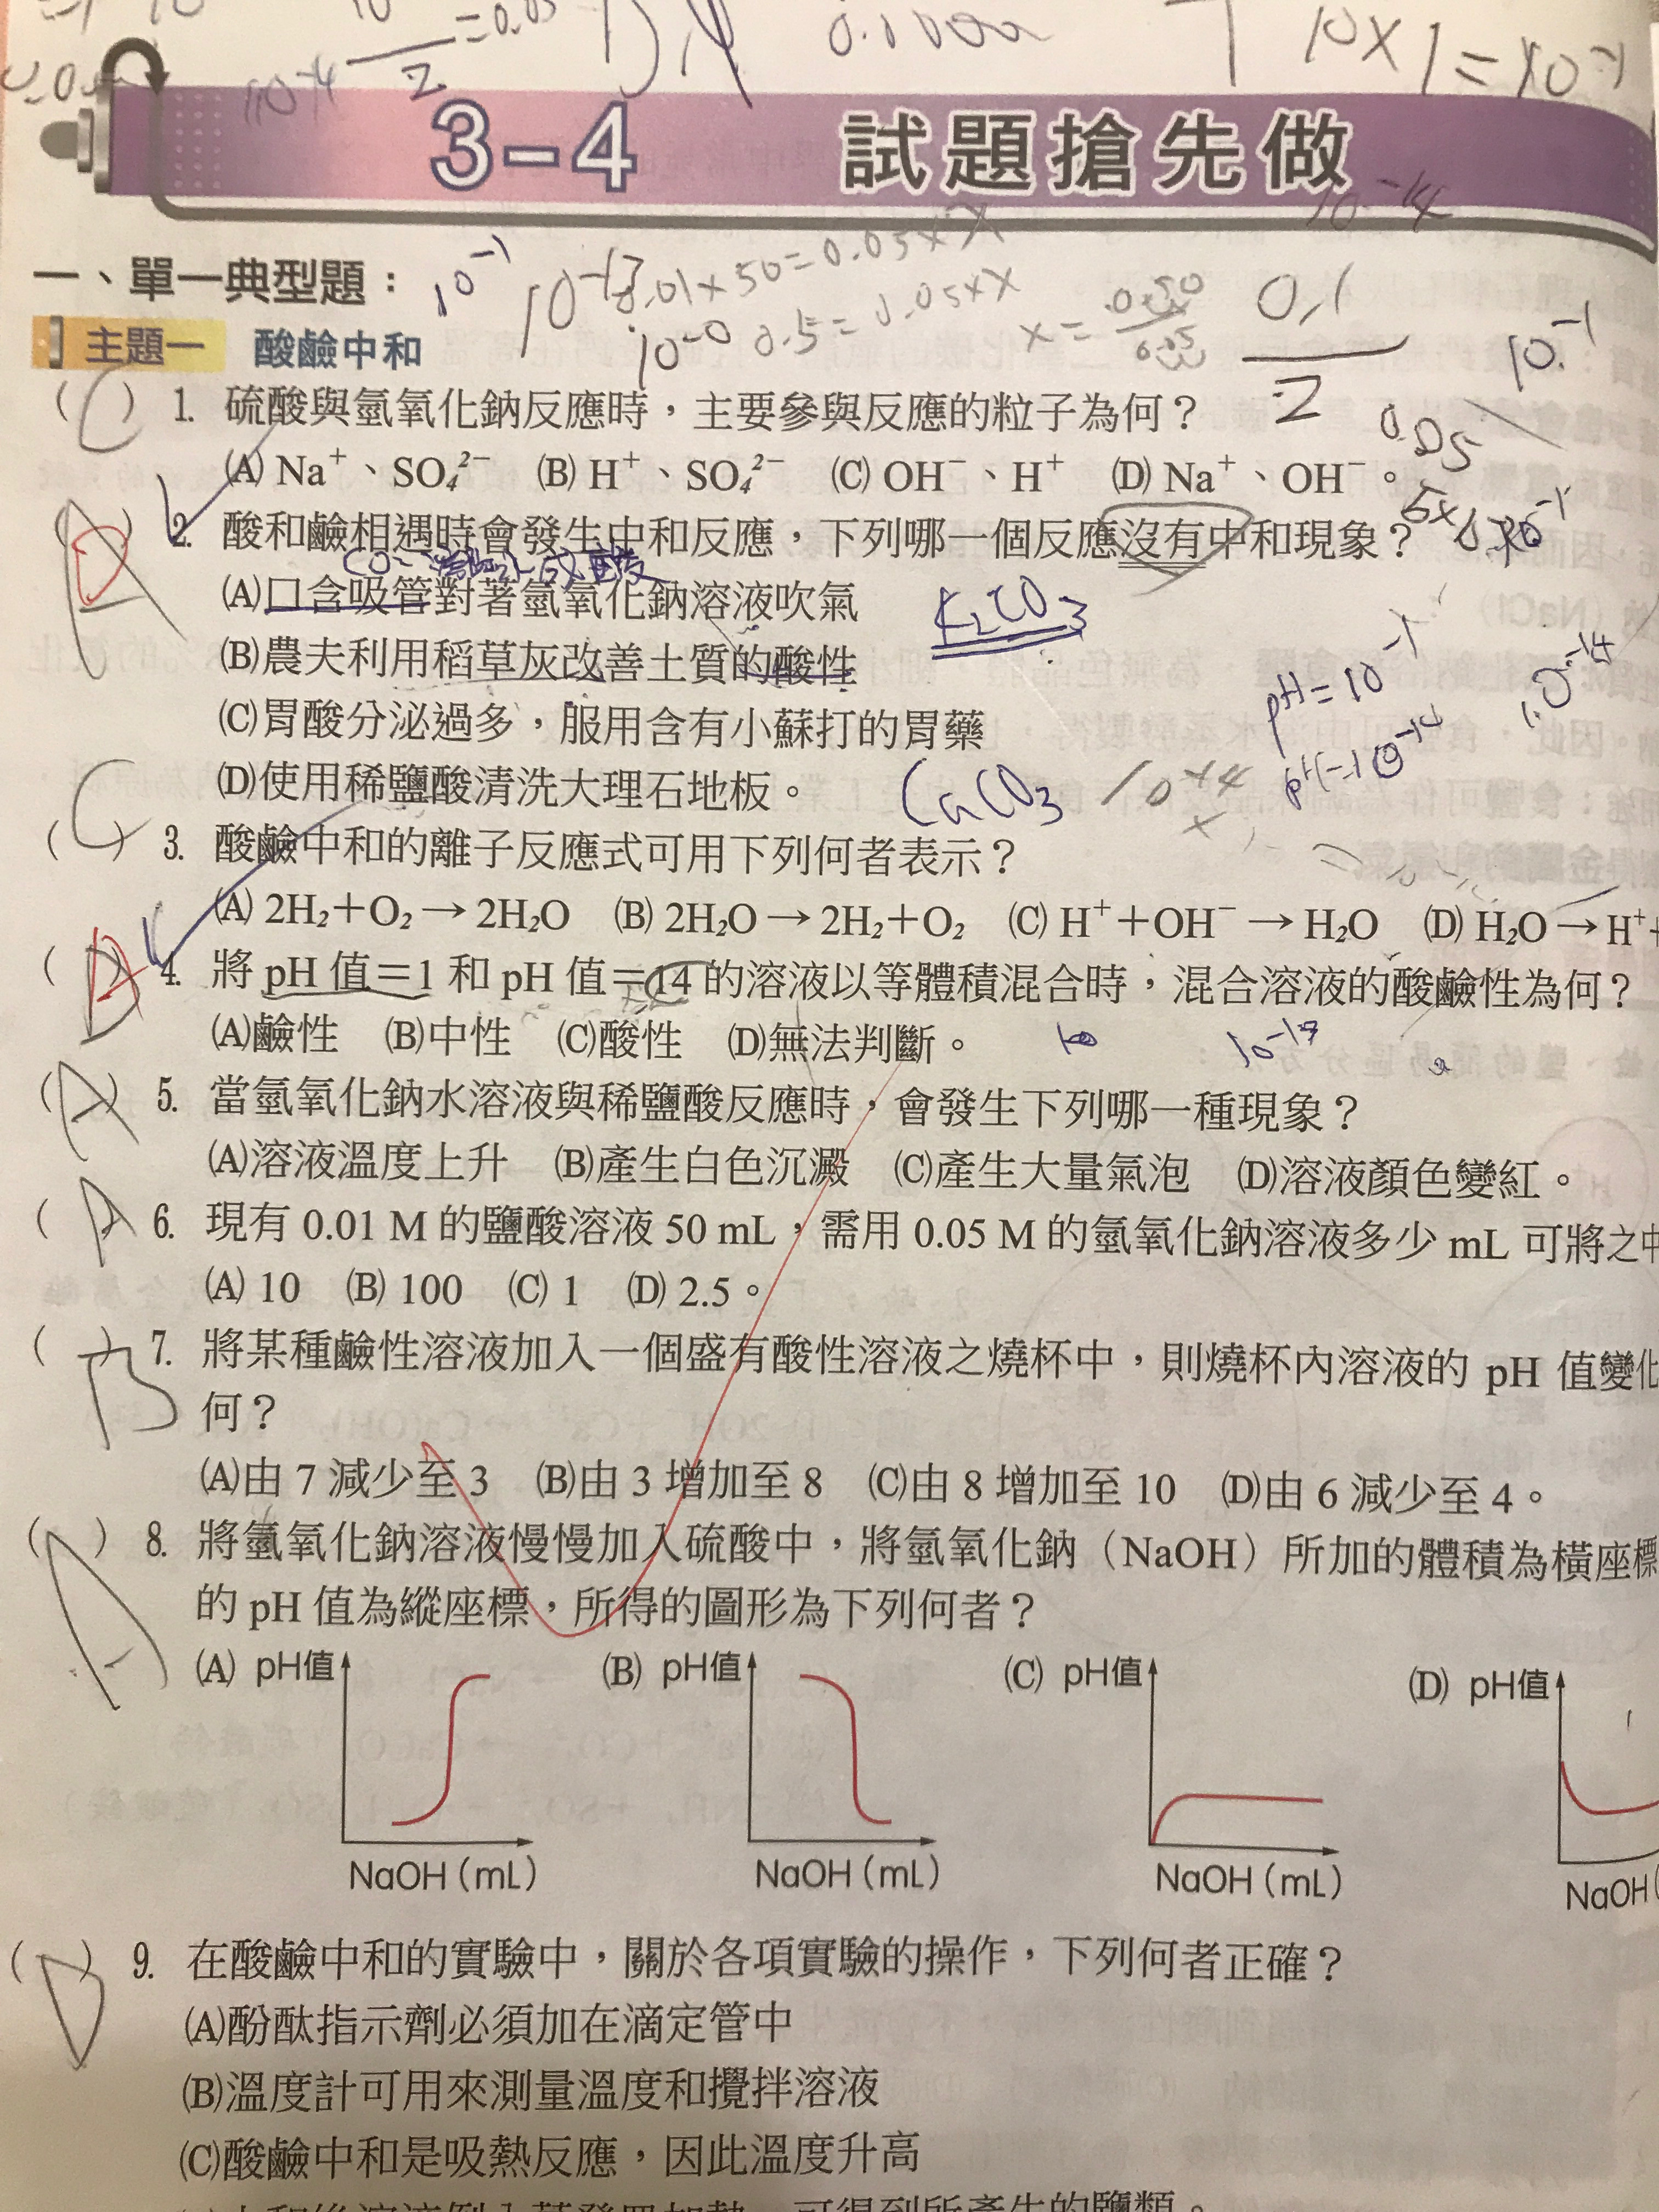 3-4 試題搶先做
10×1=10⁻¹
一、單一典型題：
主題一 酸鹼中和
10⁻¹
0.01×50=0.05×X
0.5=0.05×X
0.1
2
0.05
10⁻¹
(C) 1. 硫酸與氫氧化鈉反應時，主要參與反應的粒子為何？
(A) Na⁺、SO₄²⁻ (B) H⁺、SO₄²⁻ (C) OH⁻、H⁺ (D) Na⁺、OH⁻。
(D) 2. 酸和鹼相遇時會發生中和反應，下列哪一個反應沒有中和現象？
(A)口含吸管對著氫氧化鈉溶液吹氣
K₂CO₃
(B)農夫利用稻草灰改善土質的酸性
(C)胃酸分泌過多，服用含有小蘇打的胃藥
pH=10⁻¹
pH=10⁻¹⁴
(D)使用稀鹽酸清洗大理石地板。
CaCO₃
(C) 3. 酸鹼中和的離子反應式可用下列何者表示？
(A) 2H₂+O₂→2H₂O (B) 2H₂O→2H₂+O₂ (C) H⁺+OH⁻→H₂O (D) H₂O→H⁺+
( ) 4. 將 pH 值＝1 和 pH 值＝14 的溶液以等體積混合時，混合溶液的酸鹼性為何？
(A)鹼性 (B)中性 (C)酸性 (D)無法判斷。
(A) 5. 當氫氧化鈉水溶液與稀鹽酸反應時，會發生下列哪一種現象？
(A)溶液溫度上升 (B)產生白色沉澱 (C)產生大量氣泡 (D)溶液顏色變紅。
(A) 6. 現有 0.01 M 的鹽酸溶液 50 mL，需用 0.05 M 的氫氧化鈉溶液多少 mL 可將之中
(A) 10 (B) 100 (C) 1 (D) 2.5。
(B) 7. 將某種鹼性溶液加入一個盛有酸性溶液之燒杯中，則燒杯內溶液的 pH 值變化
何？
(A)由 7 減少至 3 (B)由 3 增加至 8 (C)由 8 增加至 10 (D)由 6 減少至 4。
(A) 8. 將氫氧化鈉溶液慢慢加入硫酸中，將氫氧化鈉（NaOH）所加的體積為橫座標
的 pH 值為縱座標，所得的圖形為下列何者？
(A) pH值 (B) pH值 (C) pH值 (D) pH值
NaOH(mL) NaOH(mL) NaOH(mL) NaOH(
(D) 9. 在酸鹼中和的實驗中，關於各項實驗的操作，下列何者正確？
(A)酚酞指示劑必須加在滴定管中
(B)溫度計可用來測量溫度和攪拌溶液
(C)酸鹼中和是吸熱反應，因此溫度升高